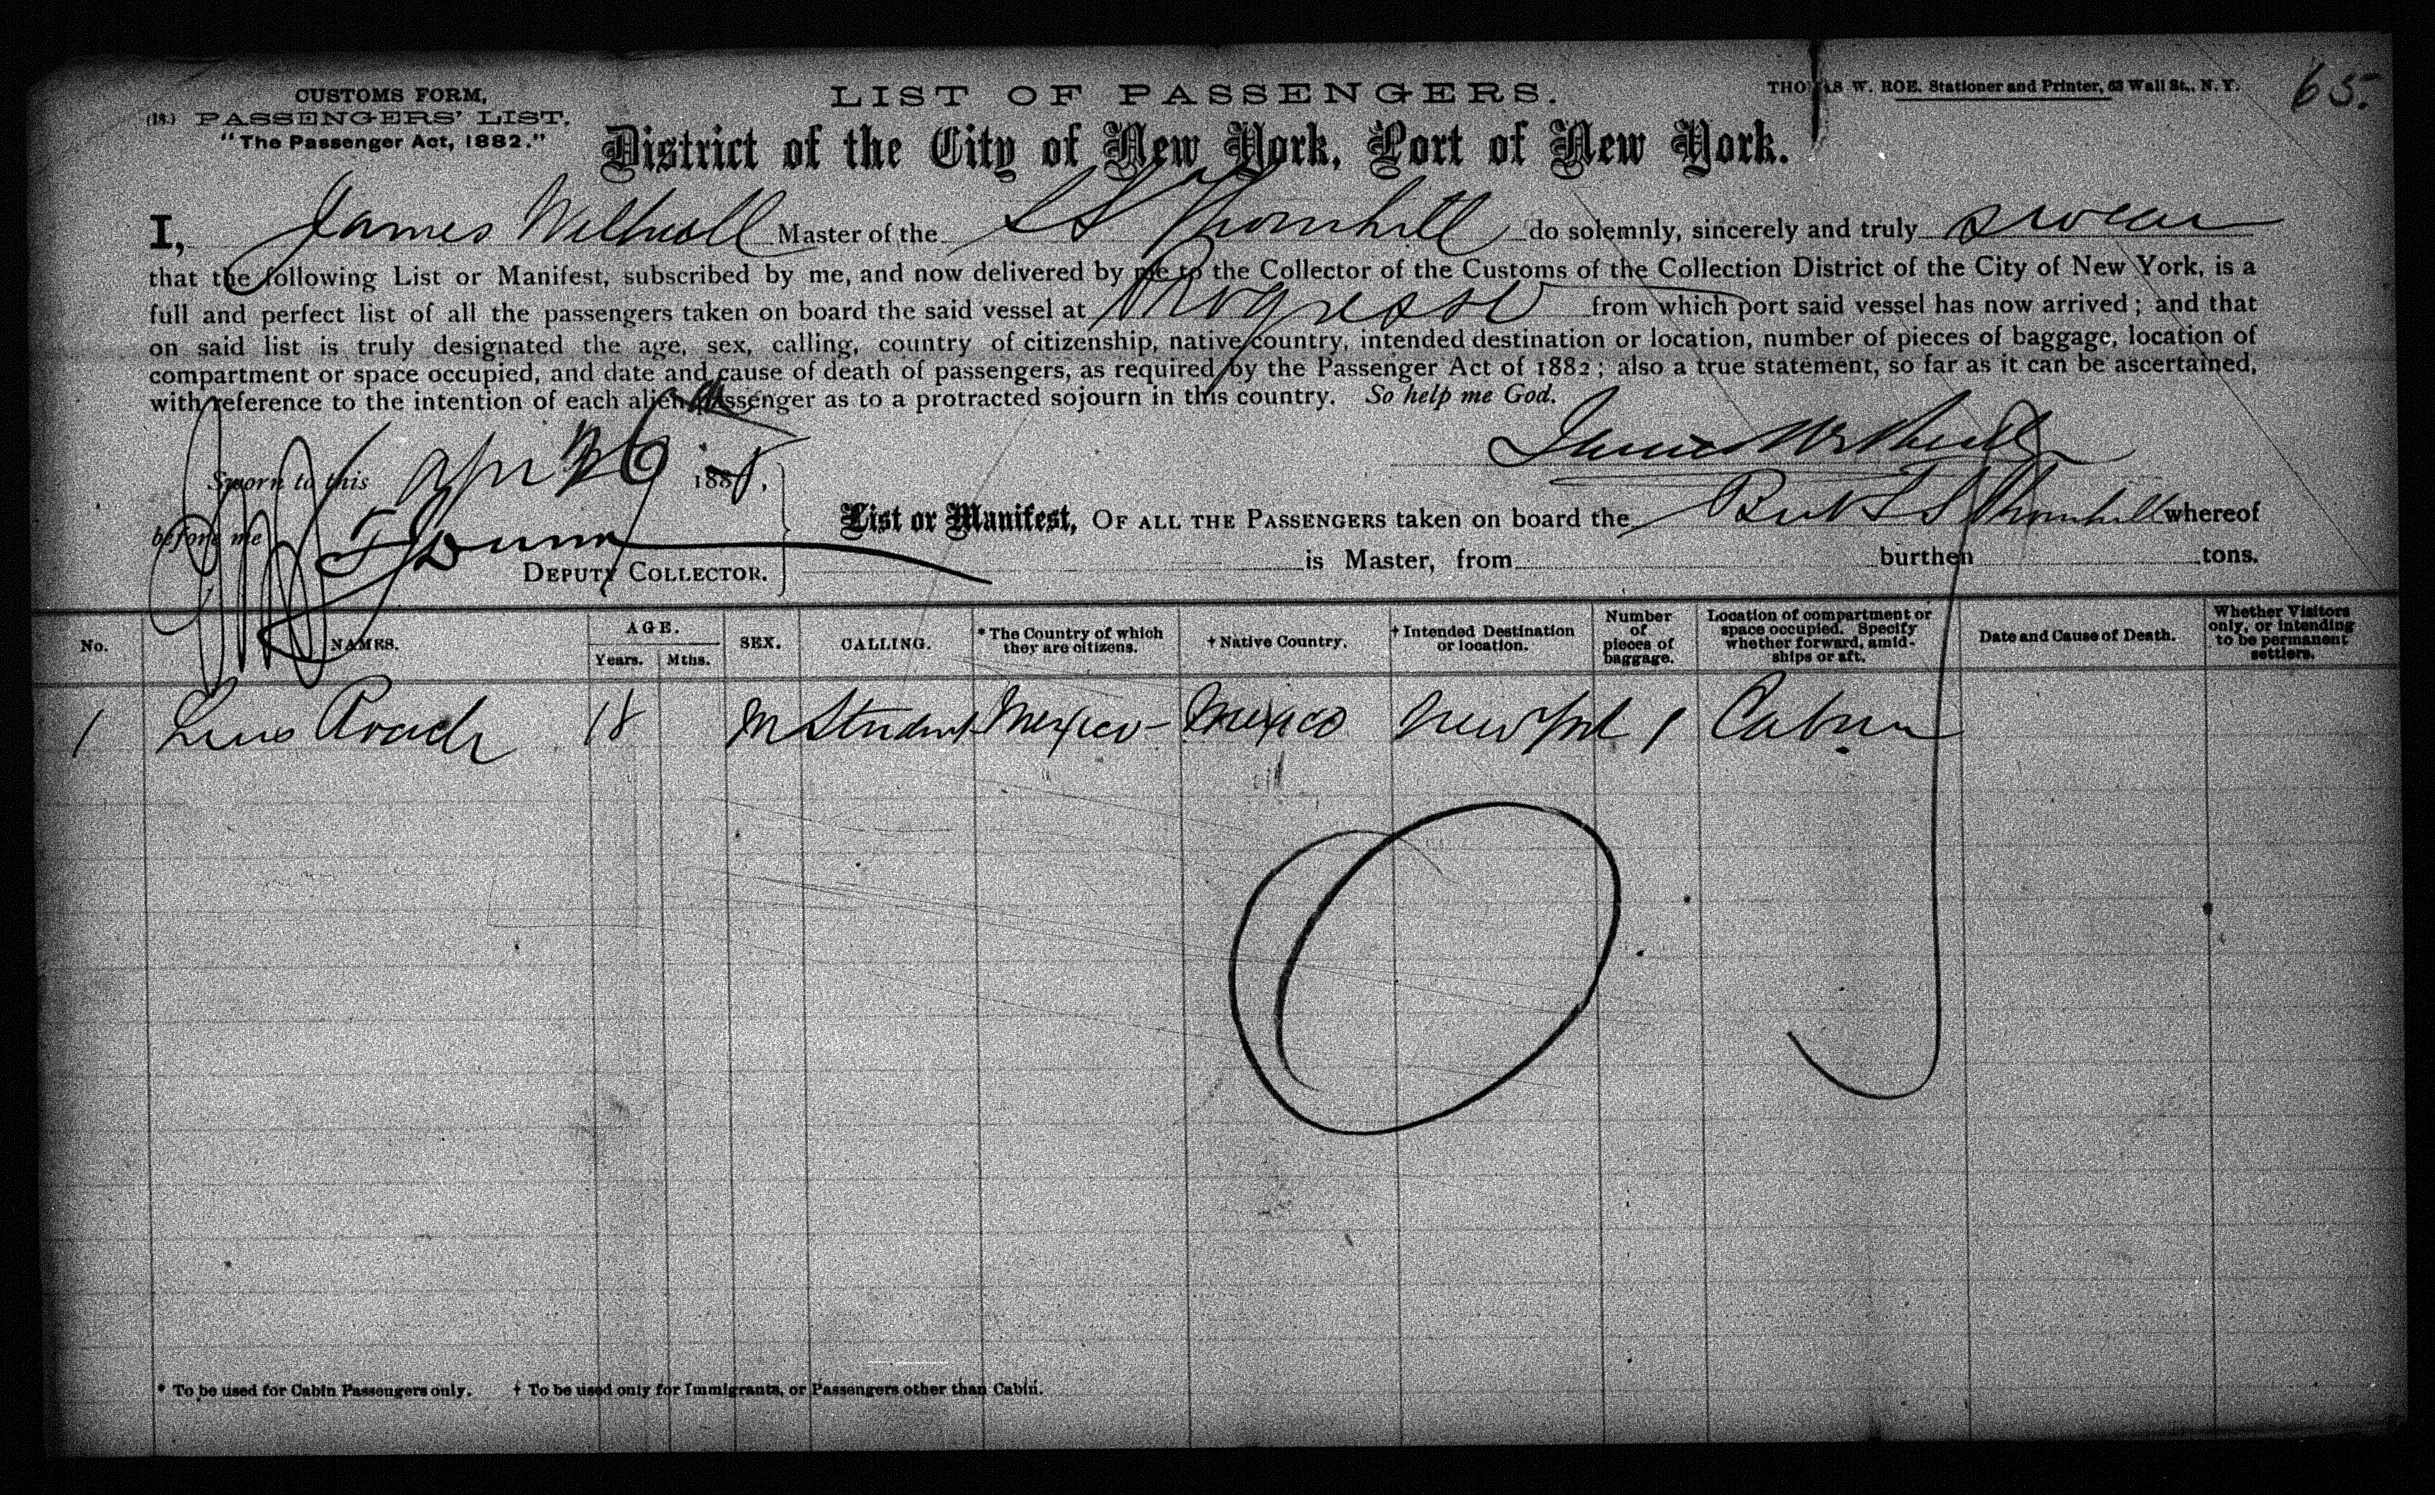 CUSTOMS FORM,
(18.) PASSENGERS' LIST.
"The Passenger Act, 1882."
LIST OF PASSENGERS.
THOMAS W. ROE, Stationer and Printer, 63 Wall St., N. Y.
65.
District of the City of New York, Port of New York.
I, James Master of the SS Thornhill do solemnly, sincerely and truly swear
that the following List or Manifest, subscribed by me, and now delivered by me to the Collector of the Customs of the Collection District of the City of New York, is a
full and perfect list of all the passengers taken on board the said vessel at Progresso from which port said vessel has now arrived; and that
on said list is truly designated the age, sex, calling, country of citizenship, native country, intended destination or location, number of pieces of baggage, location of
compartment or space occupied, and date and cause of death of passengers, as required by the Passenger Act of 1882; also a true statement, so far as it can be ascertained,
with reference to the intention of each alien passenger as to a protracted sojourn in this country. So help me God.
James
Sworn to this Apr 26 188
before me Dunn
DEPUTY COLLECTOR.
List or Manifest, OF ALL THE PASSENGERS taken on board the SS Thornhill whereof
is Master, from burthen tons.
No. NAMES. AGE. Years. Mths. SEX. CALLING. * The Country of which they are citizens. † Native Country. † Intended Destination or location. Number of pieces of baggage. Location of compartment or space occupied. Specify whether forward, amidships or aft. Date and Cause of Death. Whether Visitors only, or intending to be permanent settlers.
1 18 M Student Mexico - Mexico New York 1 Cabin
* To be used for Cabin Passengers only. † To be used only for Immigrants, or Passengers other than Cabin.